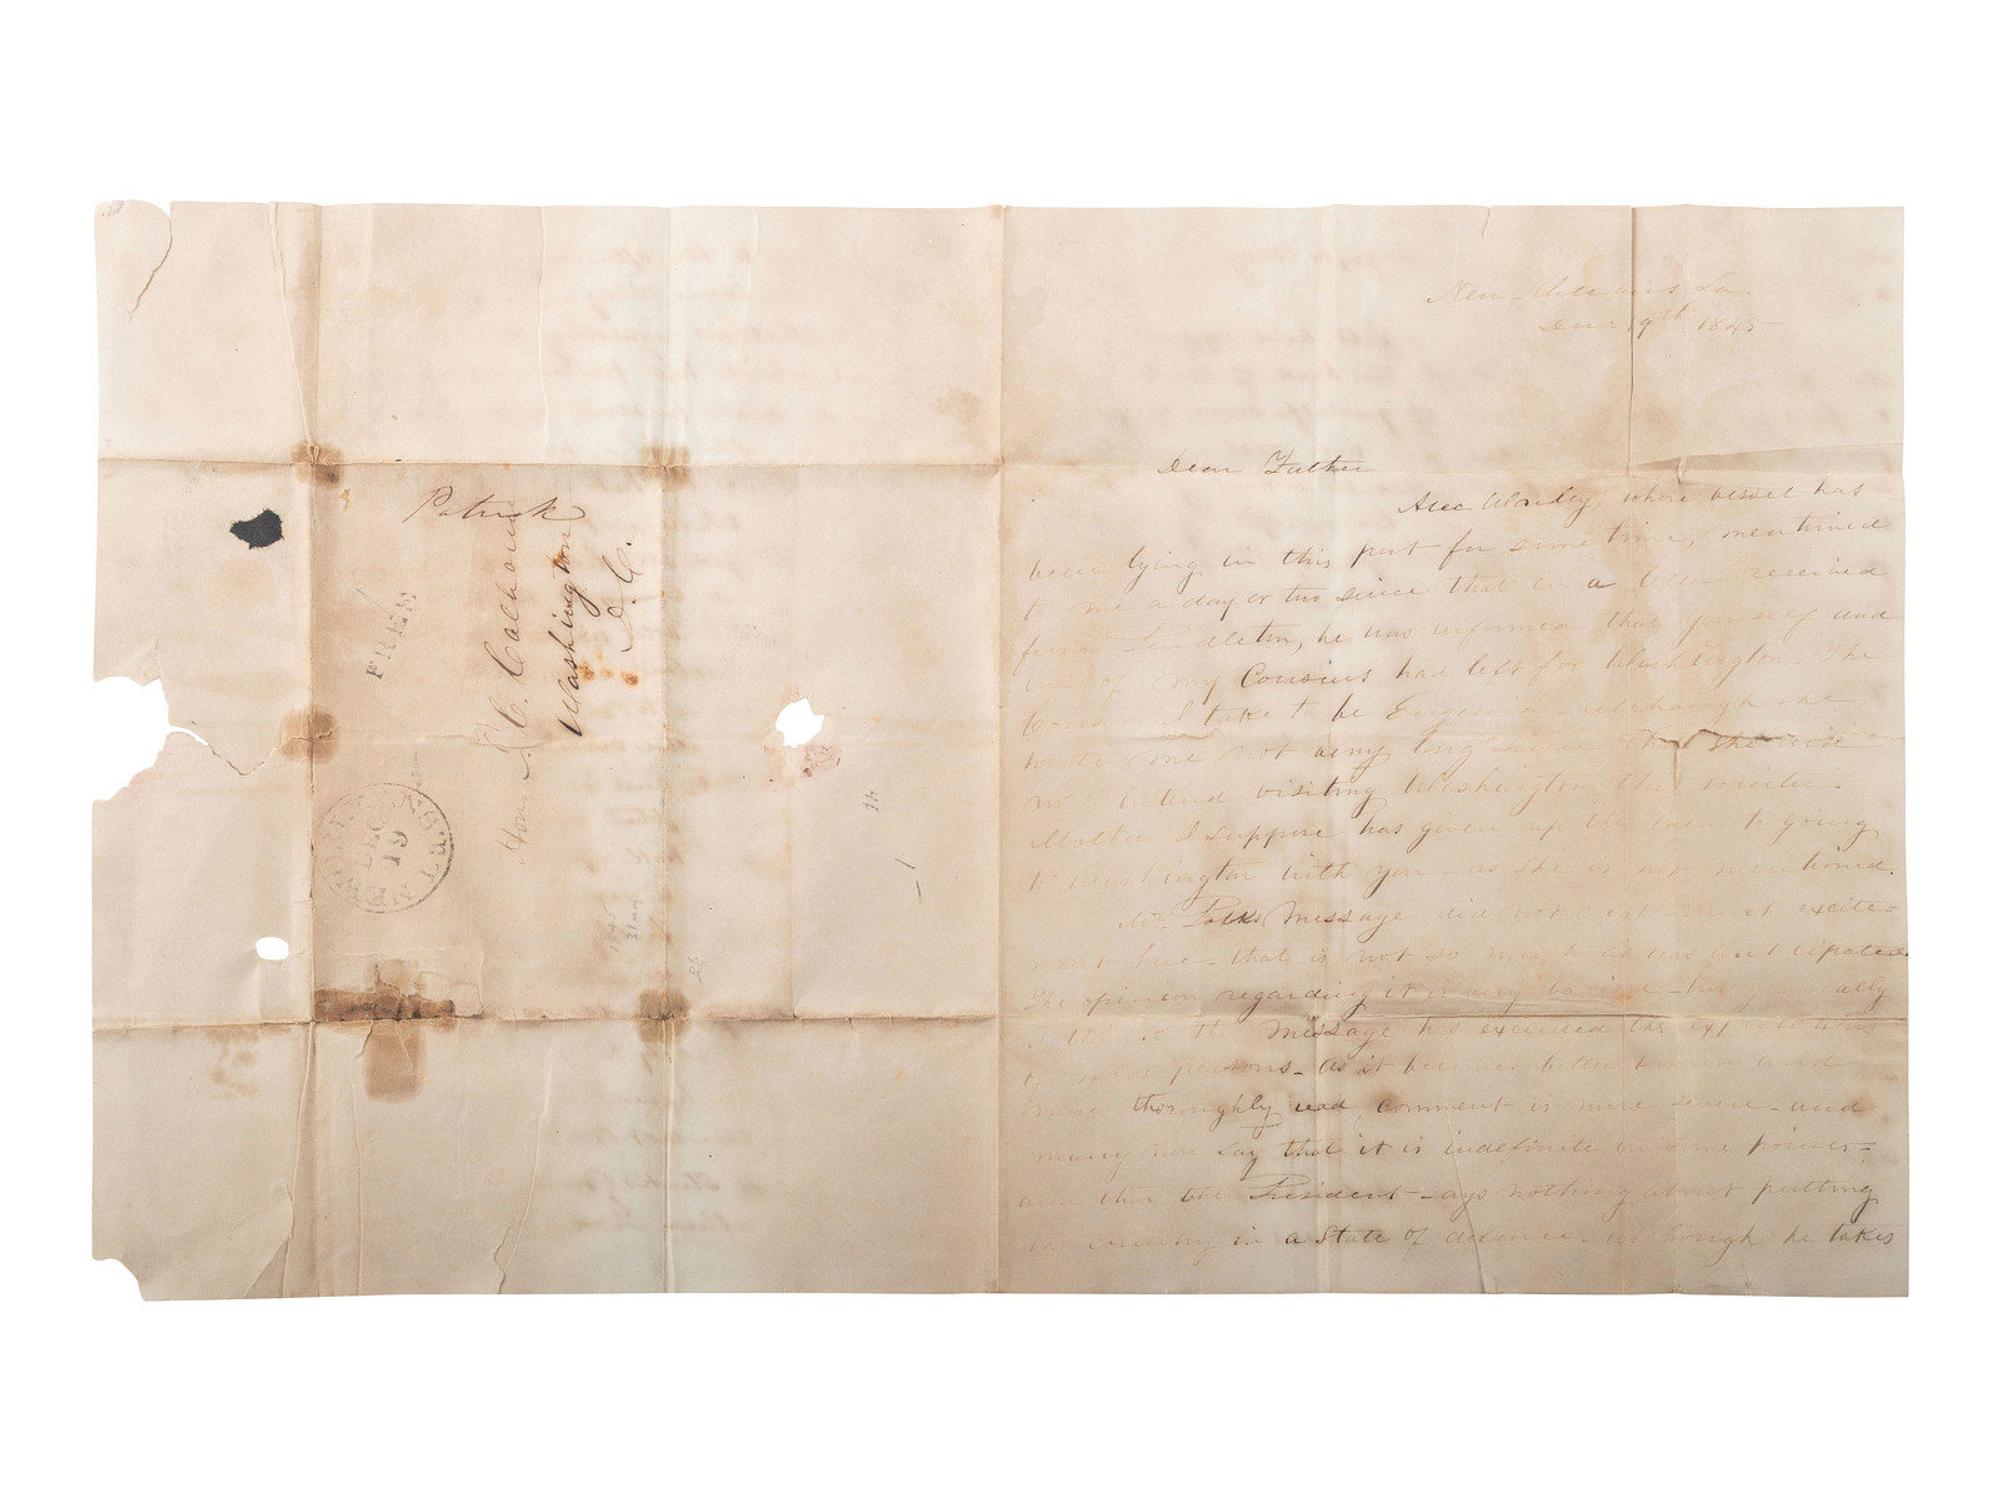 Patrick
FREE
Hon J. C. Calhoun
Washington
D. C.
NEW ORLEANS La.
DEC
19
1845
New-Orleans La.
Decr 19th 1845-
Dear Father
Alec Wardly, whose vessel has
been lying in this port for some time, mentioned
to me a day or two since that in a letter received
from Pendleton, he was informed that yourself and
of my Cousins had left for Washington. The
Cousin I take to be Eugenia - although she
wrote me not very long since that she did
not intend visiting Washington this winter.
Mother I suppose has given up the idea to going
to Washington with you - as she is not mentioned.
Mr. Polks Message did not create much excite=
ment here - that is not so much as was anticipated.
The opinion regarding it is very varied - but ally
the message has exceeded the expectations
of most persons - as it becomes better known and
more thoroughly read, comment is more severe - and
many now say that it is indefinite on some points=
and that the President says nothing about putting
the country in a State of defence - although he takes